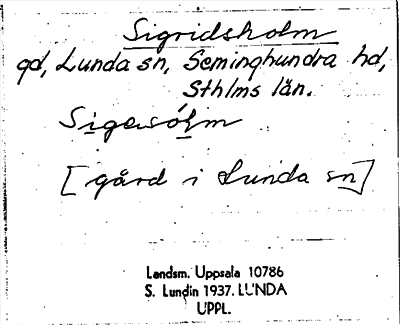 Sigridsholm
gd, Lunda sn, Seminghundra hd,
Sthlms län.
Sigersólm
[gård i Lunda sn]
Landsm. Uppsala 10786
S. Lundin 1937. LUNDA
UPPL.